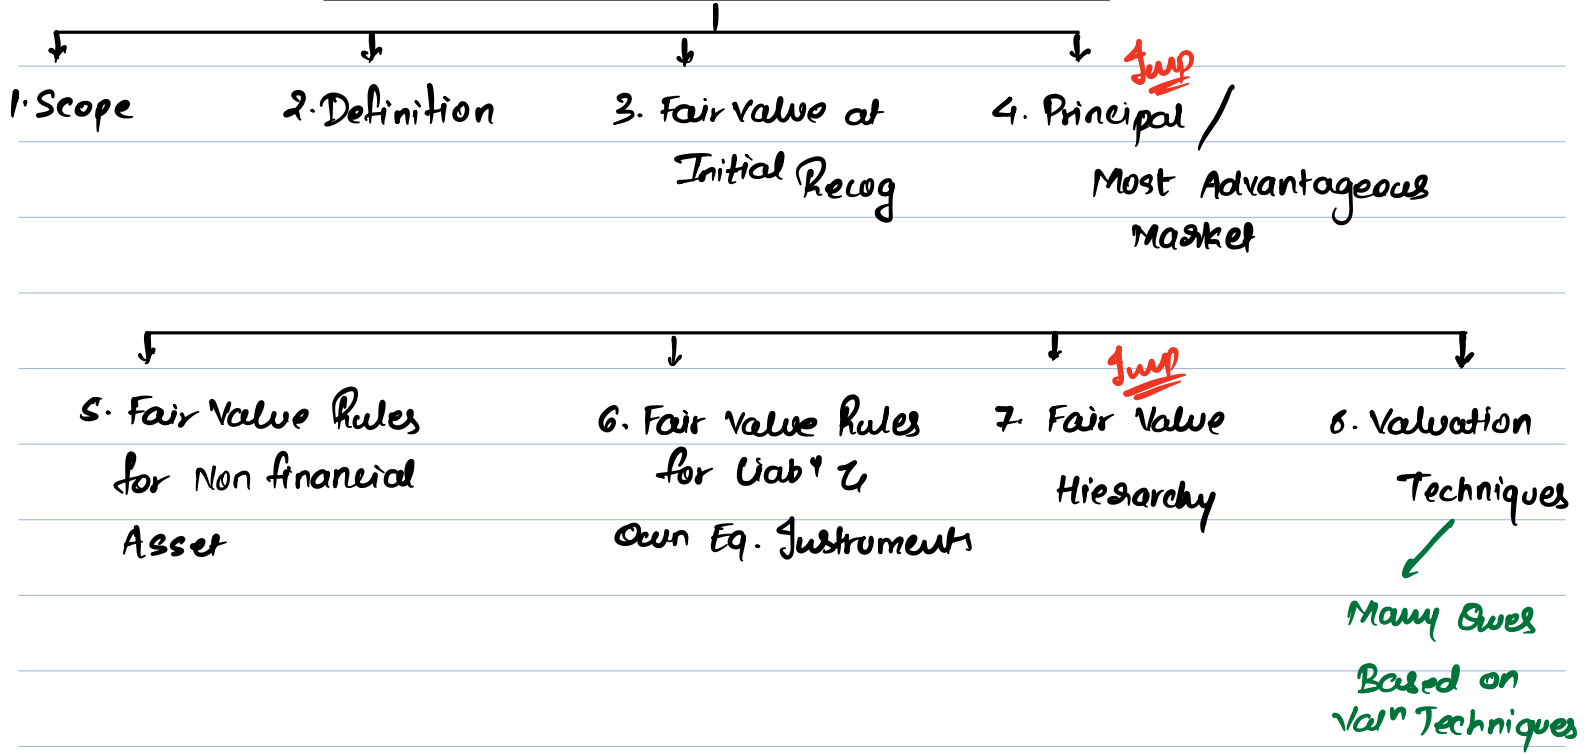 Imp
1. Scope
2. Definition
3. Fair value at
Initial Recog
4. Principal /
Most Advantageous
Market
5. Fair Value Rules
for Non financial
Asset
6. Fair Value Rules
for Liabʸ &
Own Eq. Instruments
Imp
7. Fair Value
Hierarchy
8. Valuation
Techniques
Many Ques
Based on
Valⁿ Techniques